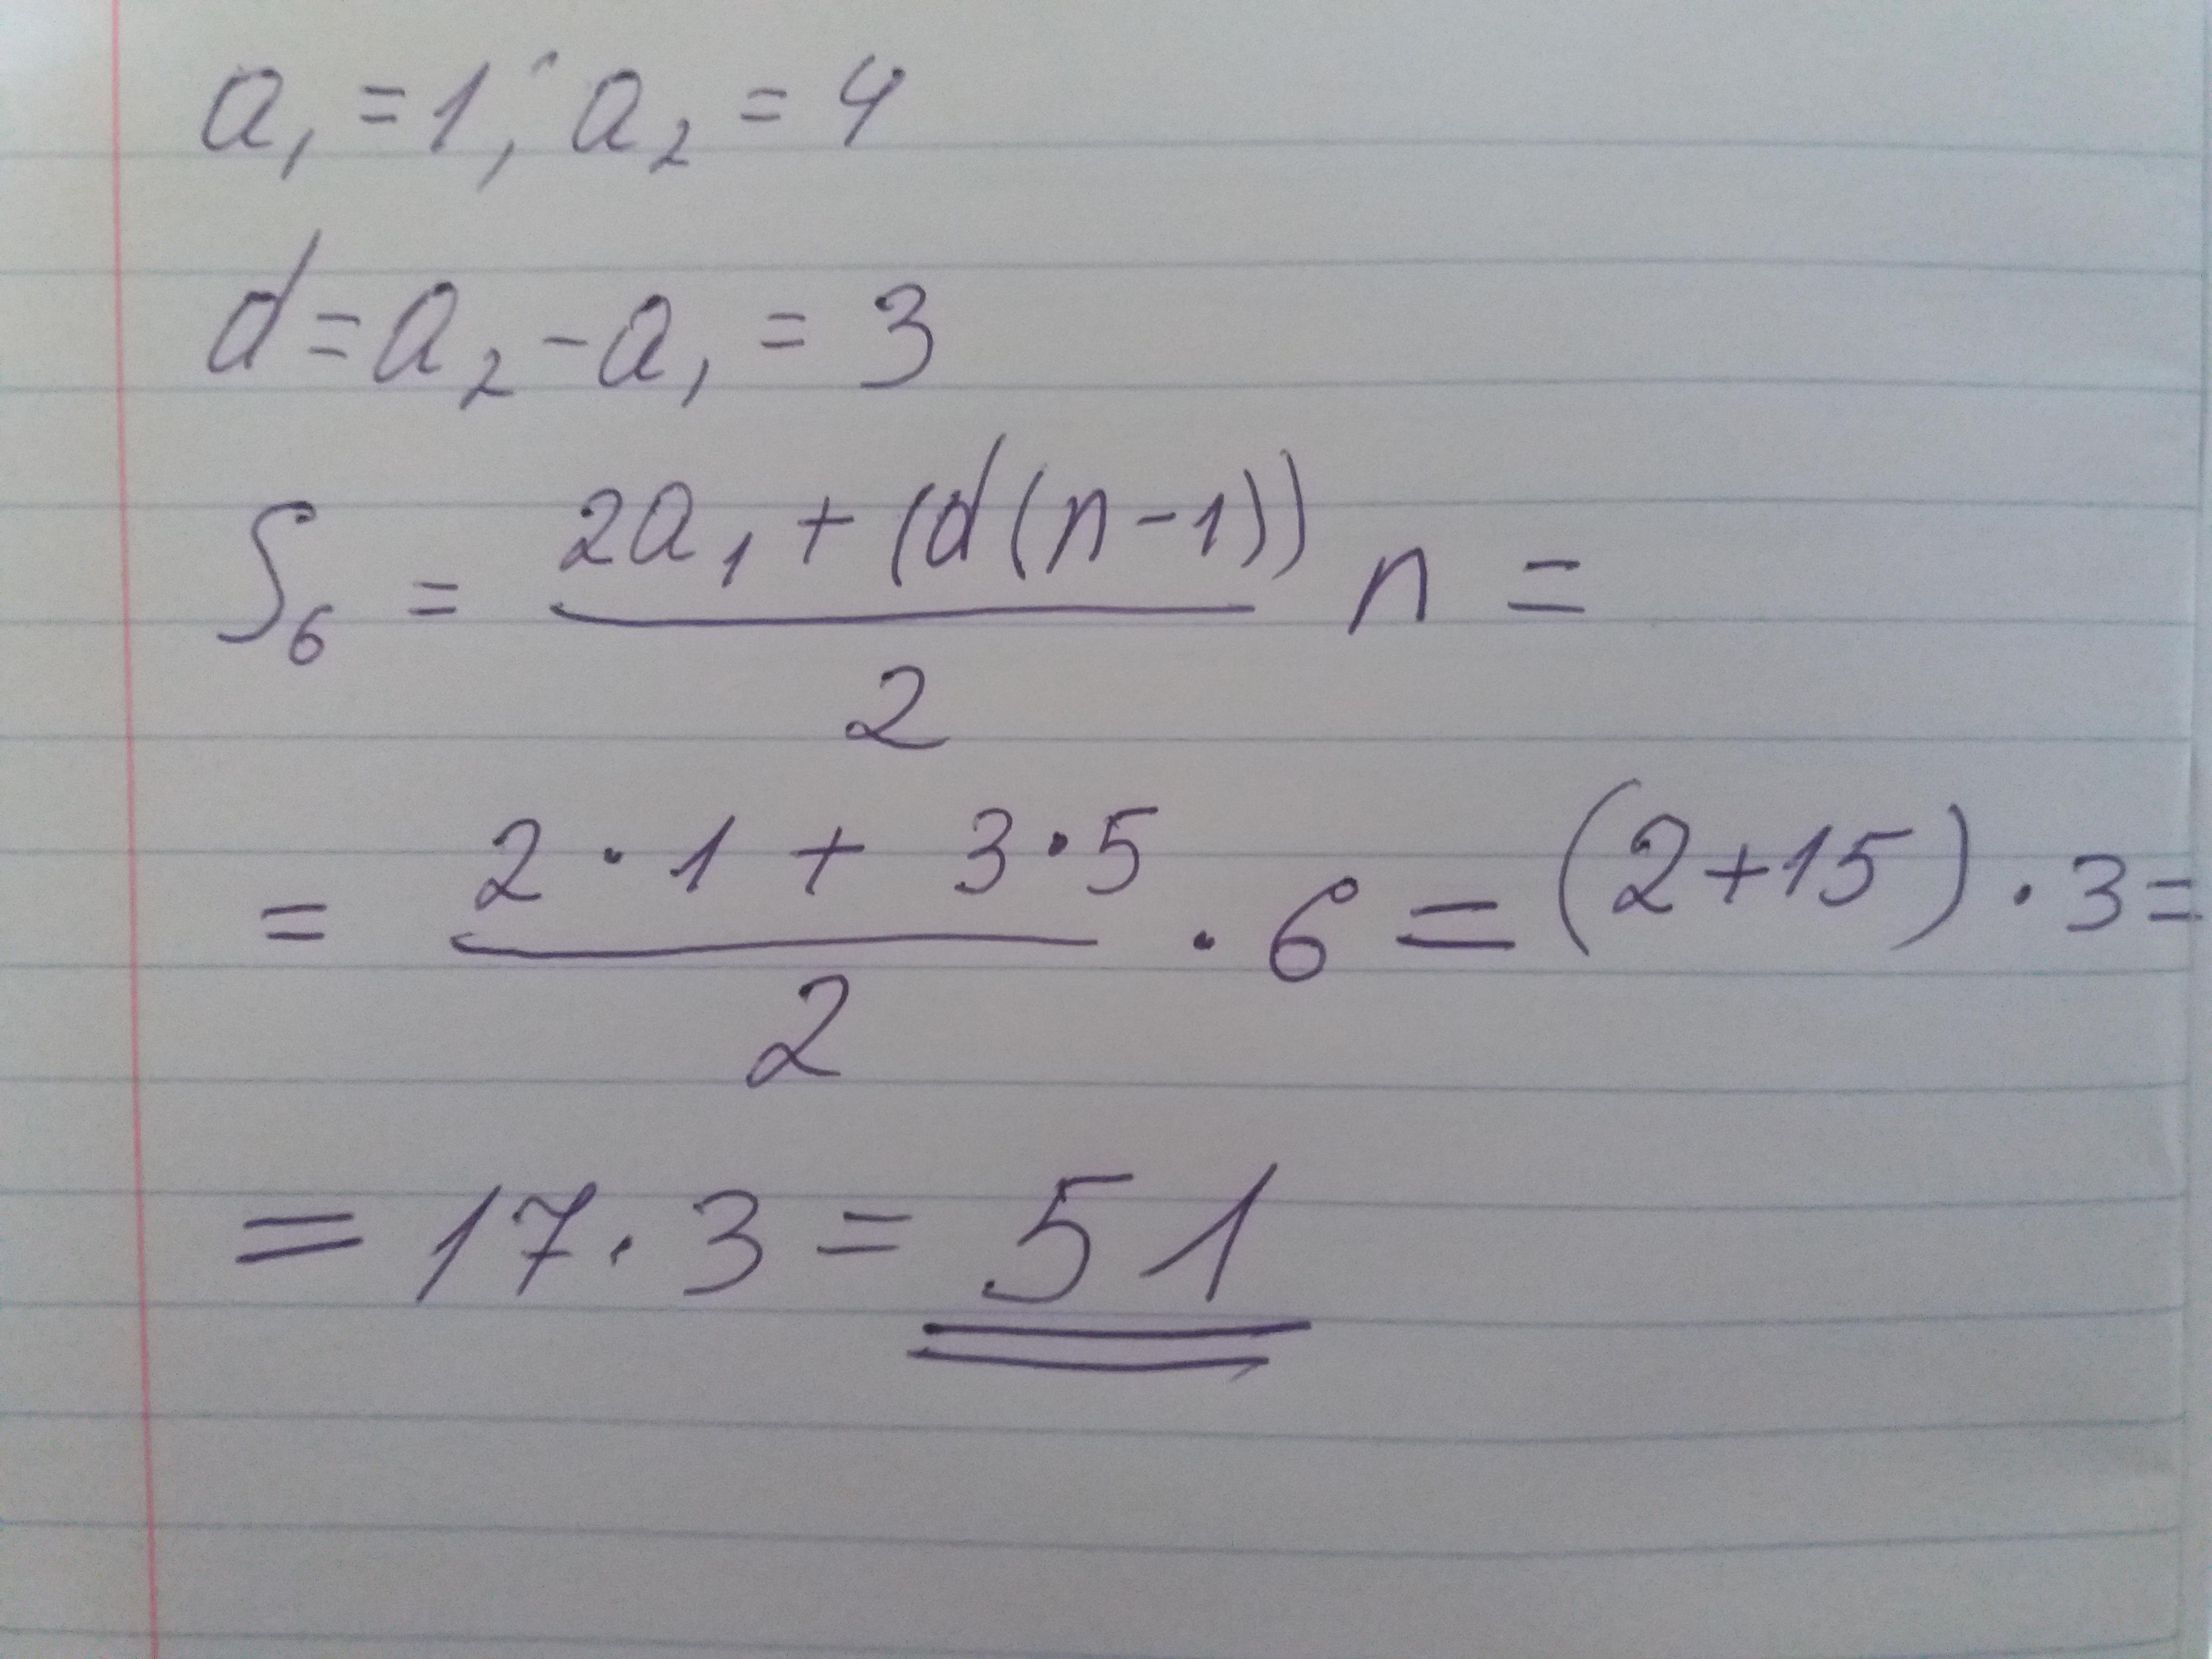 a₁ = 1, a₂ = 4
d = a₂ - a₁ = 3
S₆ = (2a₁ + (d(n-1)))/2 n =
= (2·1 + 3·5)/2 · 6 = (2+15)·3 =
= 17·3 = 51